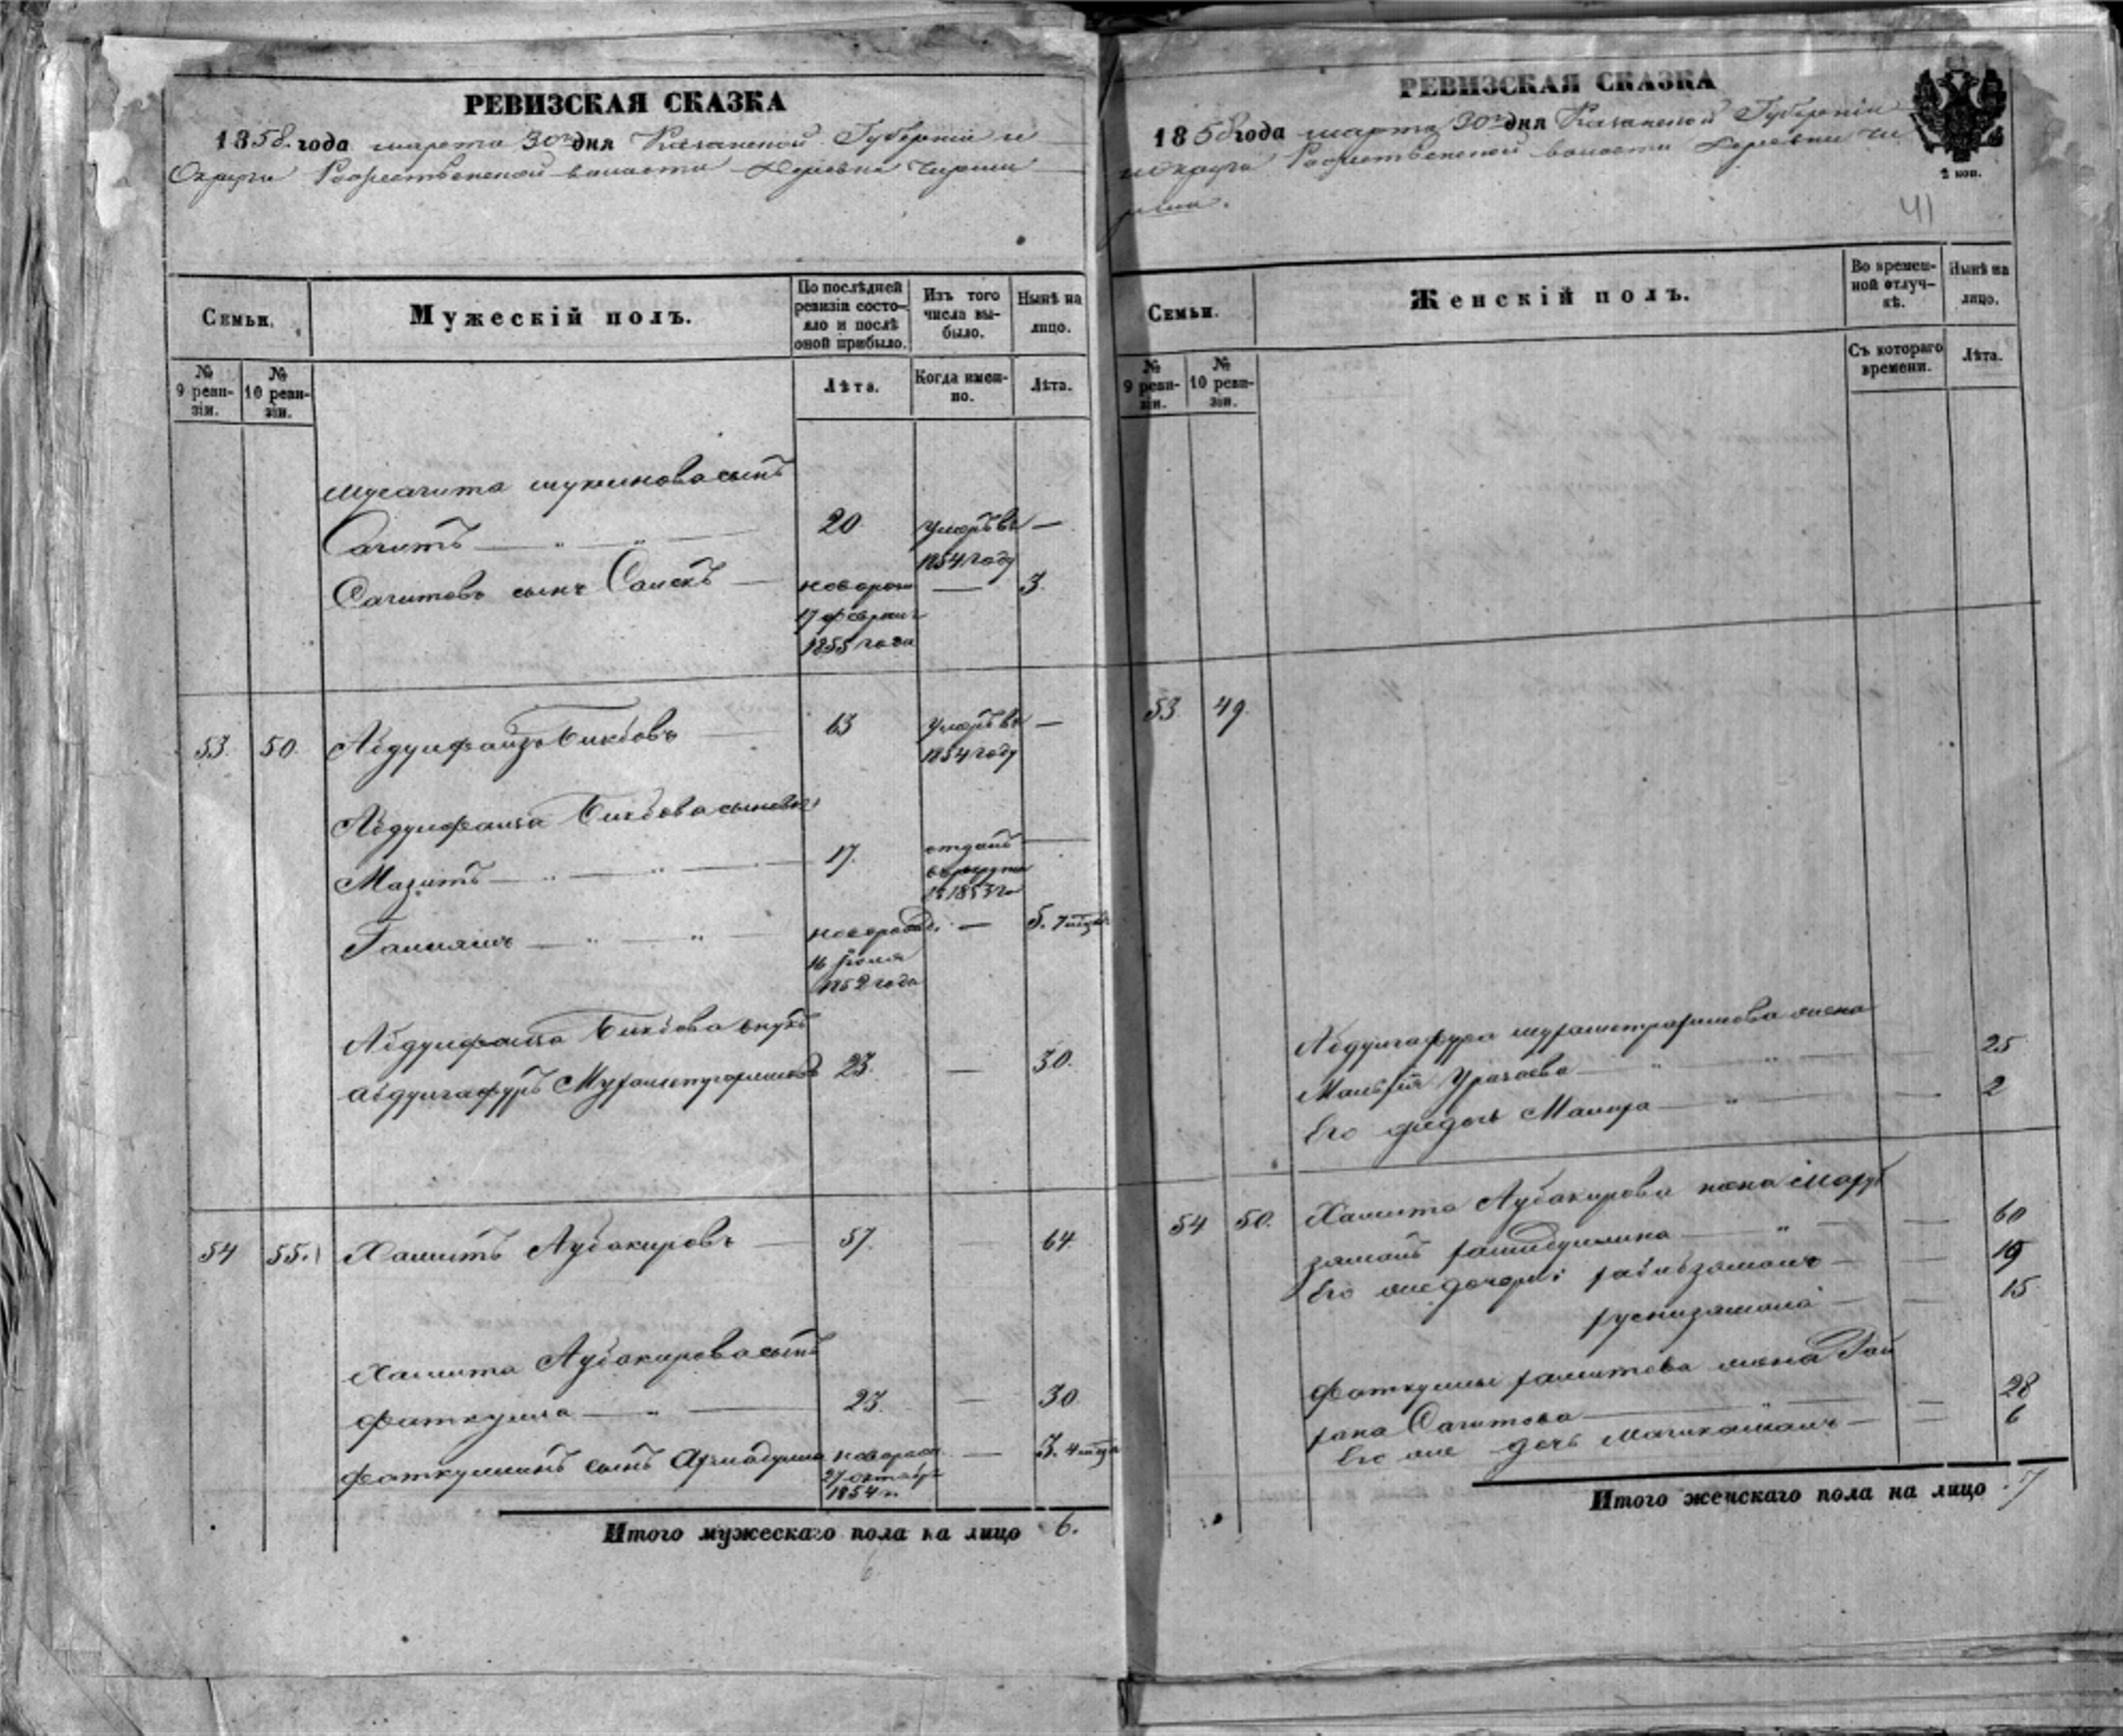 РЕВИЗСКАЯ СКАЗКА
1858 года марта 30го дня Казанской Губернии и
Округи Рождественской волости Деревни Чирши
Семьи.
Мужескій полъ.
По послѣдней ревизіи состояло и послѣ оной прибыло.
Изъ того числа выбыло.
Нынѣ на лицо.
№ 9 ревизіи.
№ 10 ревизіи.
Лѣта.
Когда именно.
Лѣта.
сынъ
Сагитъ — " — " — 20 Умеръ въ —
1854 году
Сагитовъ сынъ — новорож — 3.
17 февраля
1855 года
53. 50. Абдулфаизъ Бикбовъ — 63 Умеръ въ —
1854 году
Абдулфаиза Бикбова сыновья
Мазитъ — " — " — 17. отданъ —
в рекруты
въ 1853 го
— " — " — новорожд. — 5. 7 мѣся
16 Июля
1852 года
Абдулфаиза Бикбова внукъ
Абдулгафуръ 23. — 30.
54 55. Хамитъ Аубакировъ — 57. 64.
Хамита Аубакирова сынъ
Фаткулла — " — 23. — 30
Фаткуллинъ сынъ Ахмадулла новорож — 3. 4 мѣся
27 октябр
1854 г.
Итого мужескаго пола на лицо 6.
РЕВИЗСКАЯ СКАЗКА
1858 года марта 30го дня Казанской Губернии
и округа Рождественской волости Деревни Чи
рши.
2 коп.
41
Семьи.
Женскій полъ.
Во временной отлучкѣ.
Нынѣ на лицо.
№ 9 ревизіи.
№ 10 ревизіи.
Съ котораго времени.
Лѣта.
53. 49.
Абдулгафура жена
Уразаева — " — " — 25
Его же дочь — " — 2
54 50. Хамита Аубакирова жена
замалъ — " — 60
Его же дочери: — 19
— 15
Фаткуллы Хамитова жена
Сагитова — 28
Его же дочь — 6
Итого женскаго пола на лицо 7